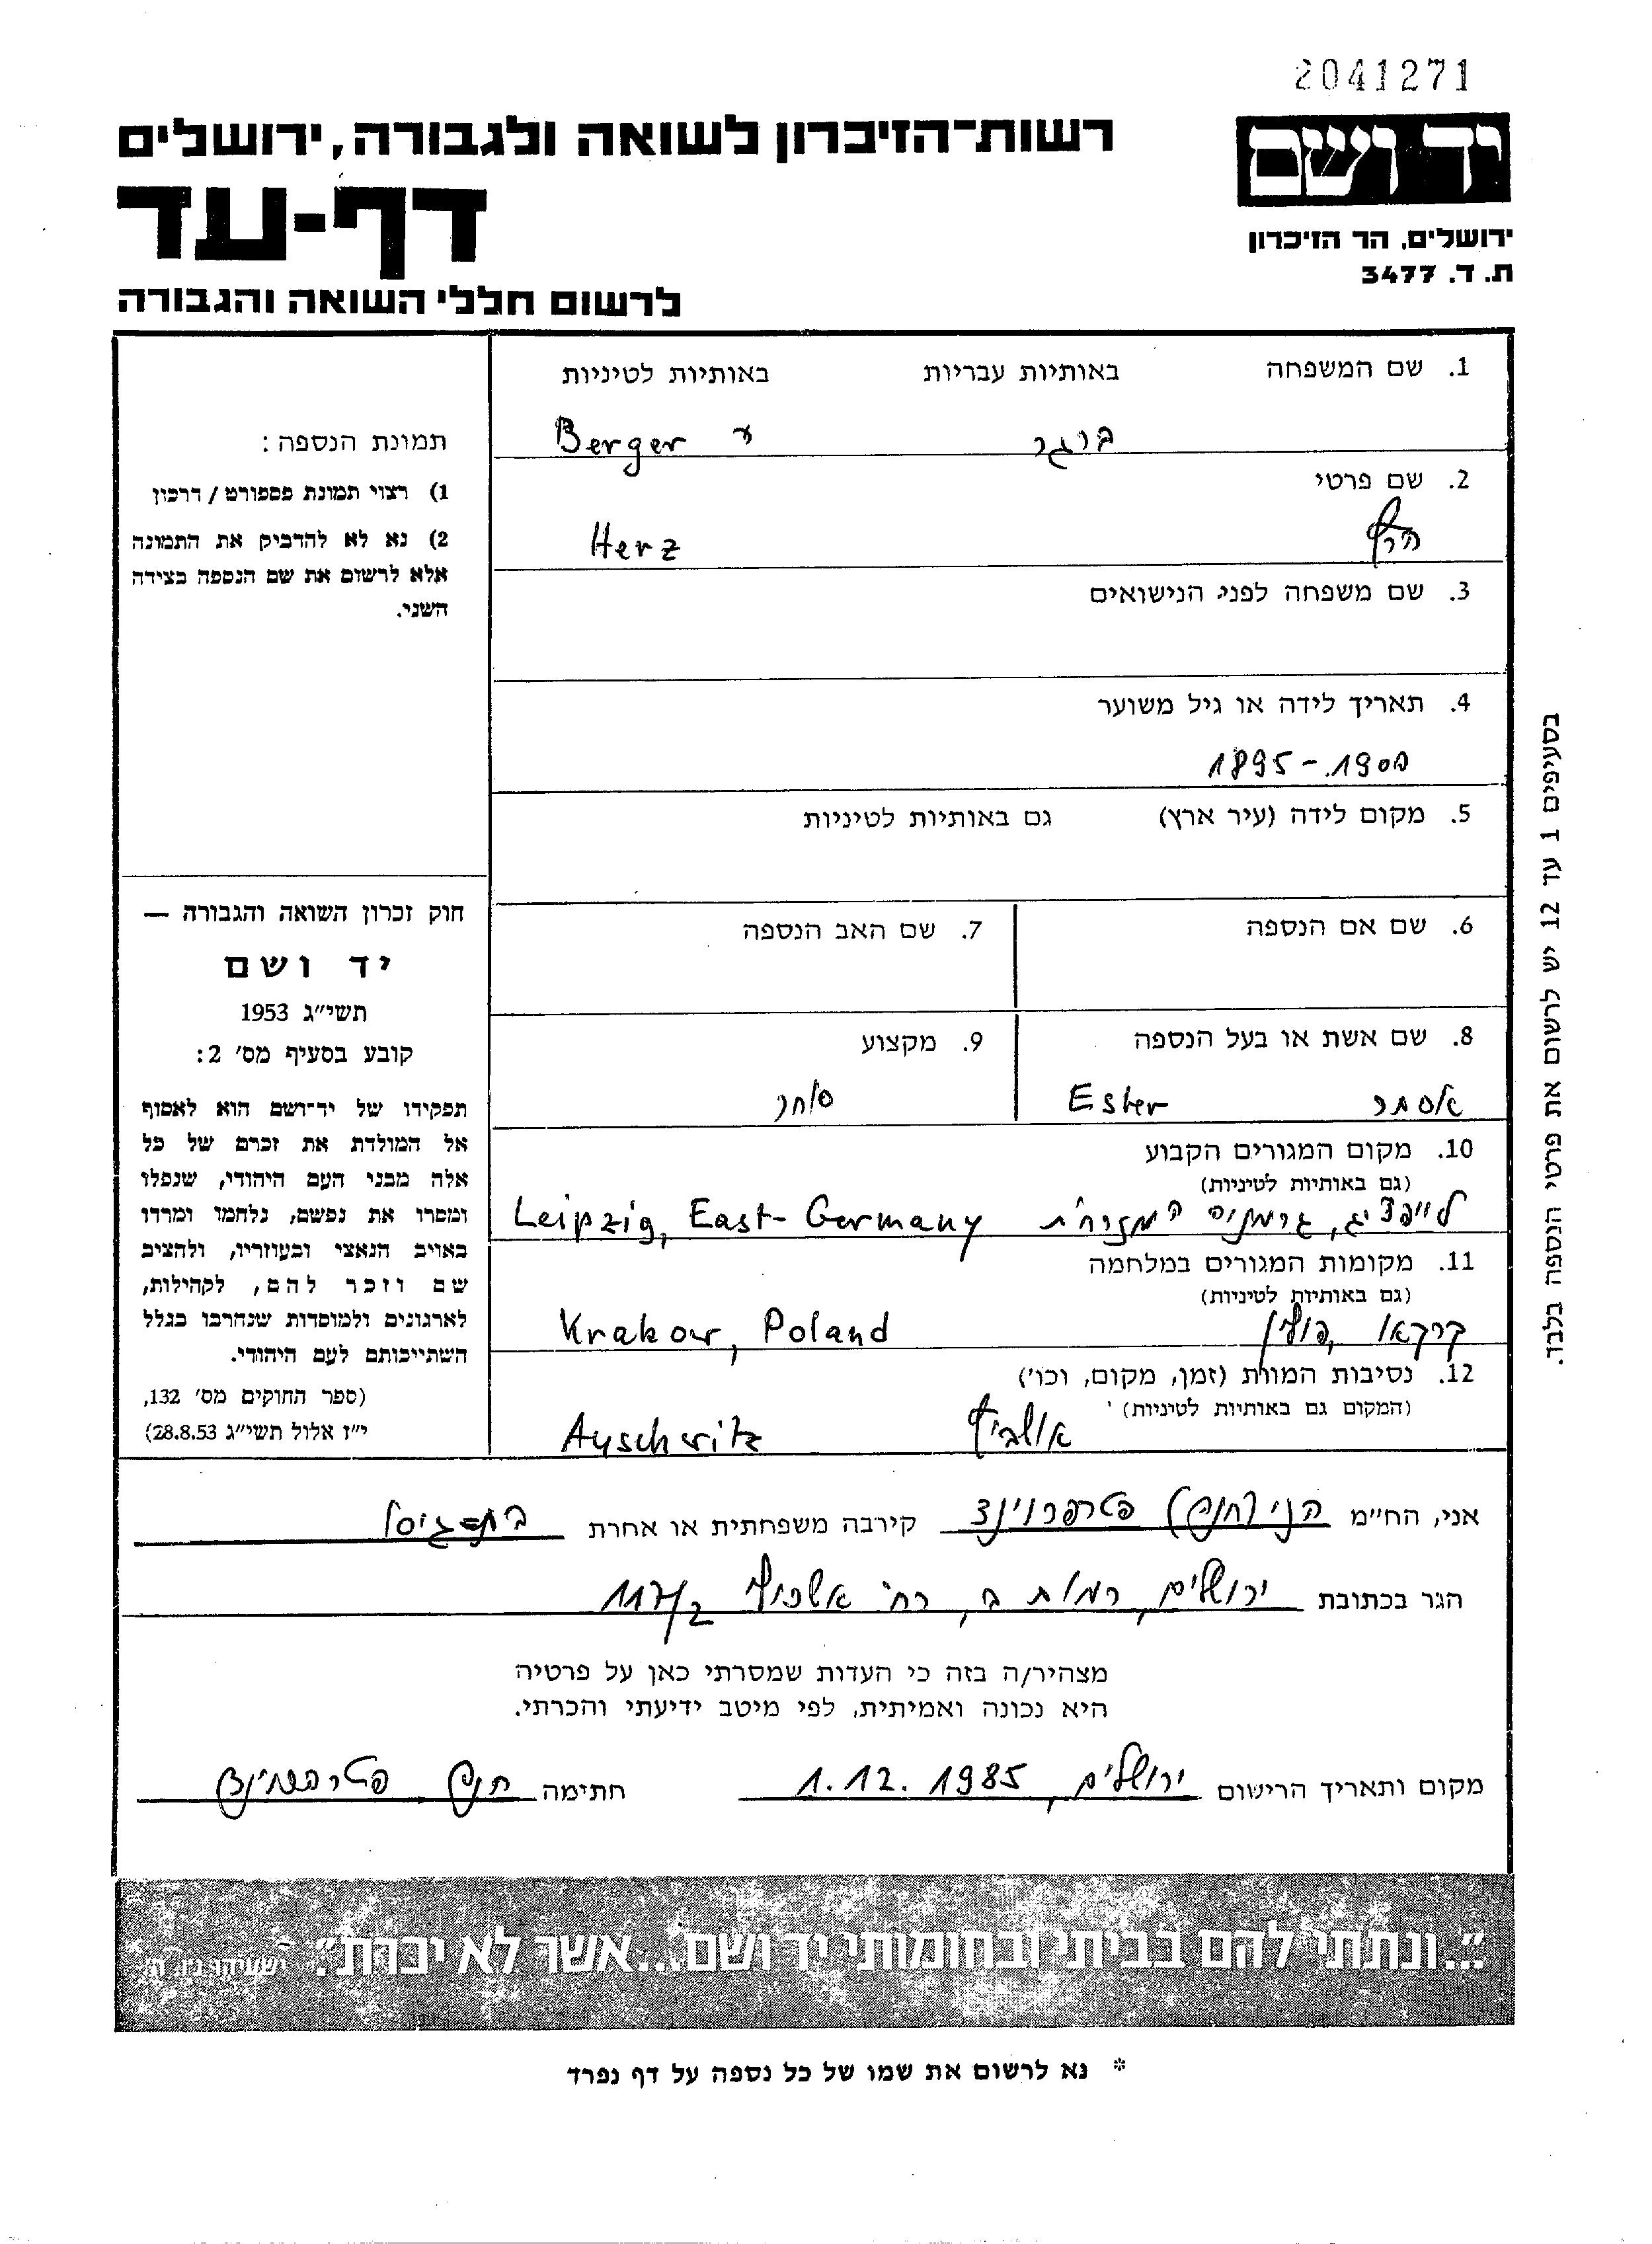 2041271
יד ושם
ירושלים, הר הזיכרון
ת. ד. 3477
רשות-הזיכרון לשואה ולגבורה, ירושלים
דף-עד
לרשום חללי השואה והגבורה
1. שם המשפחה באותיות עבריות באותיות לטיניות
ברגר Berger
2. שם פרטי
Herz
3. שם משפחה לפני הנישואים
4. תאריך לידה או גיל משוער
1895-1900
5. מקום לידה (עיר ארץ) גם באותיות לטיניות
6. שם אם הנספה 7. שם האב הנספה
8. שם אשת או בעל הנספה 9. מקצוע
אסתר Ester סוחר
10. מקום המגורים הקבוע
(גם באותיות לטיניות)
לייפציג, גרמניה המזרחית Leipzig, East-Germany
11. מקומות המגורים במלחמה
(גם באותיות לטיניות)
קרקאו, פולין Krakow, Poland
12. נסיבות המוות (זמן, מקום, וכו')
(המקום גם באותיות לטיניות)
אושביץ Auschwitz
תמונת הנספה:
1) רצוי תמונת פספורט / דרכון
2) נא לא להדביק את התמונה
אלא לרשום את שם הנספה בצידה
השני.
חוק זכרון השואה והגבורה —
יד ושם
תשי"ג 1953
קובע בסעיף מס' 2:
תפקידו של יד-ושם הוא לאסוף
אל המולדת את זכרם של כל
אלה מבני העם היהודי, שנפלו
ומסרו את נפשם, נלחמו ומרדו
באויב הנאצי ובעוזריו, ולהציב
שם וזכר להם, לקהילות,
לארגונים ולמוסדות שנחרבו בגלל
השתייכותם לעם היהודי.
(ספר החוקים מס' 132,
י"ז אלול תשי"ג 28.8.53)
בסעיפים 1 עד 12 יש לרשום את פרטי הנספה בלבד.
אני, הח"מ הני (חנה) פטרפרוינד קירבה משפחתית או אחרת בת-גיסו
הגר בכתובת ירושלים, רמות ב, רח' אשכולי 117/2
מצהיר/ה בזה כי העדות שמסרתי כאן על פרטיה
היא נכונה ואמיתית, לפי מיטב ידיעתי והכרתי.
מקום ותאריך הרישום ירושלים, 1.12.1985 חתימה חנה פטרפרוינד
"...ונתתי להם בביתי ובחומותי יד ושם...אשר לא יכרת". ישעיהו נ"ו, ה'
* נא לרשום את שמו של כל נספה על דף נפרד